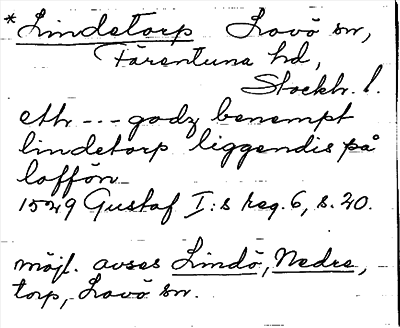 *Lindetorp Lovö sn,
Färentuna hd,
Stockh. l.
eth --- godz benempt
lindetorp liggendis på
loffön
1529 Gustaf I:s reg. 6, s. 20.
möjl. avses Lindö, Nedre,
torp, Lovö sn.